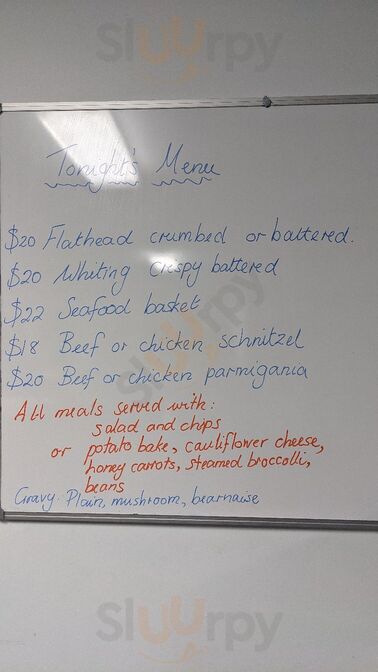 Sluurpy
Tonight's Menu
$20 Flathead crumbed or battered.
$20 Whiting crispy battered
$22 Seafood basket
$18 Beef or chicken schnitzel
$20 Beef or chicken parmigania
All meals served with:
salad and chips
or potato bake, cauliflower cheese,
honey carrots, steamed broccolli,
beans
Gravy. Plain, mushroom, bearnause
Sluurpy